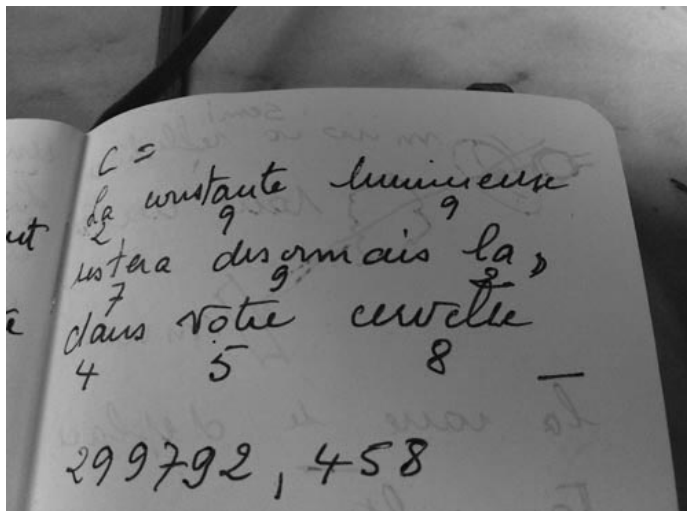 C =
La constante lumineuse
2 9 9
restera desormais la,
7 9 2
dans votre cervelle
4 5 8
299792,458